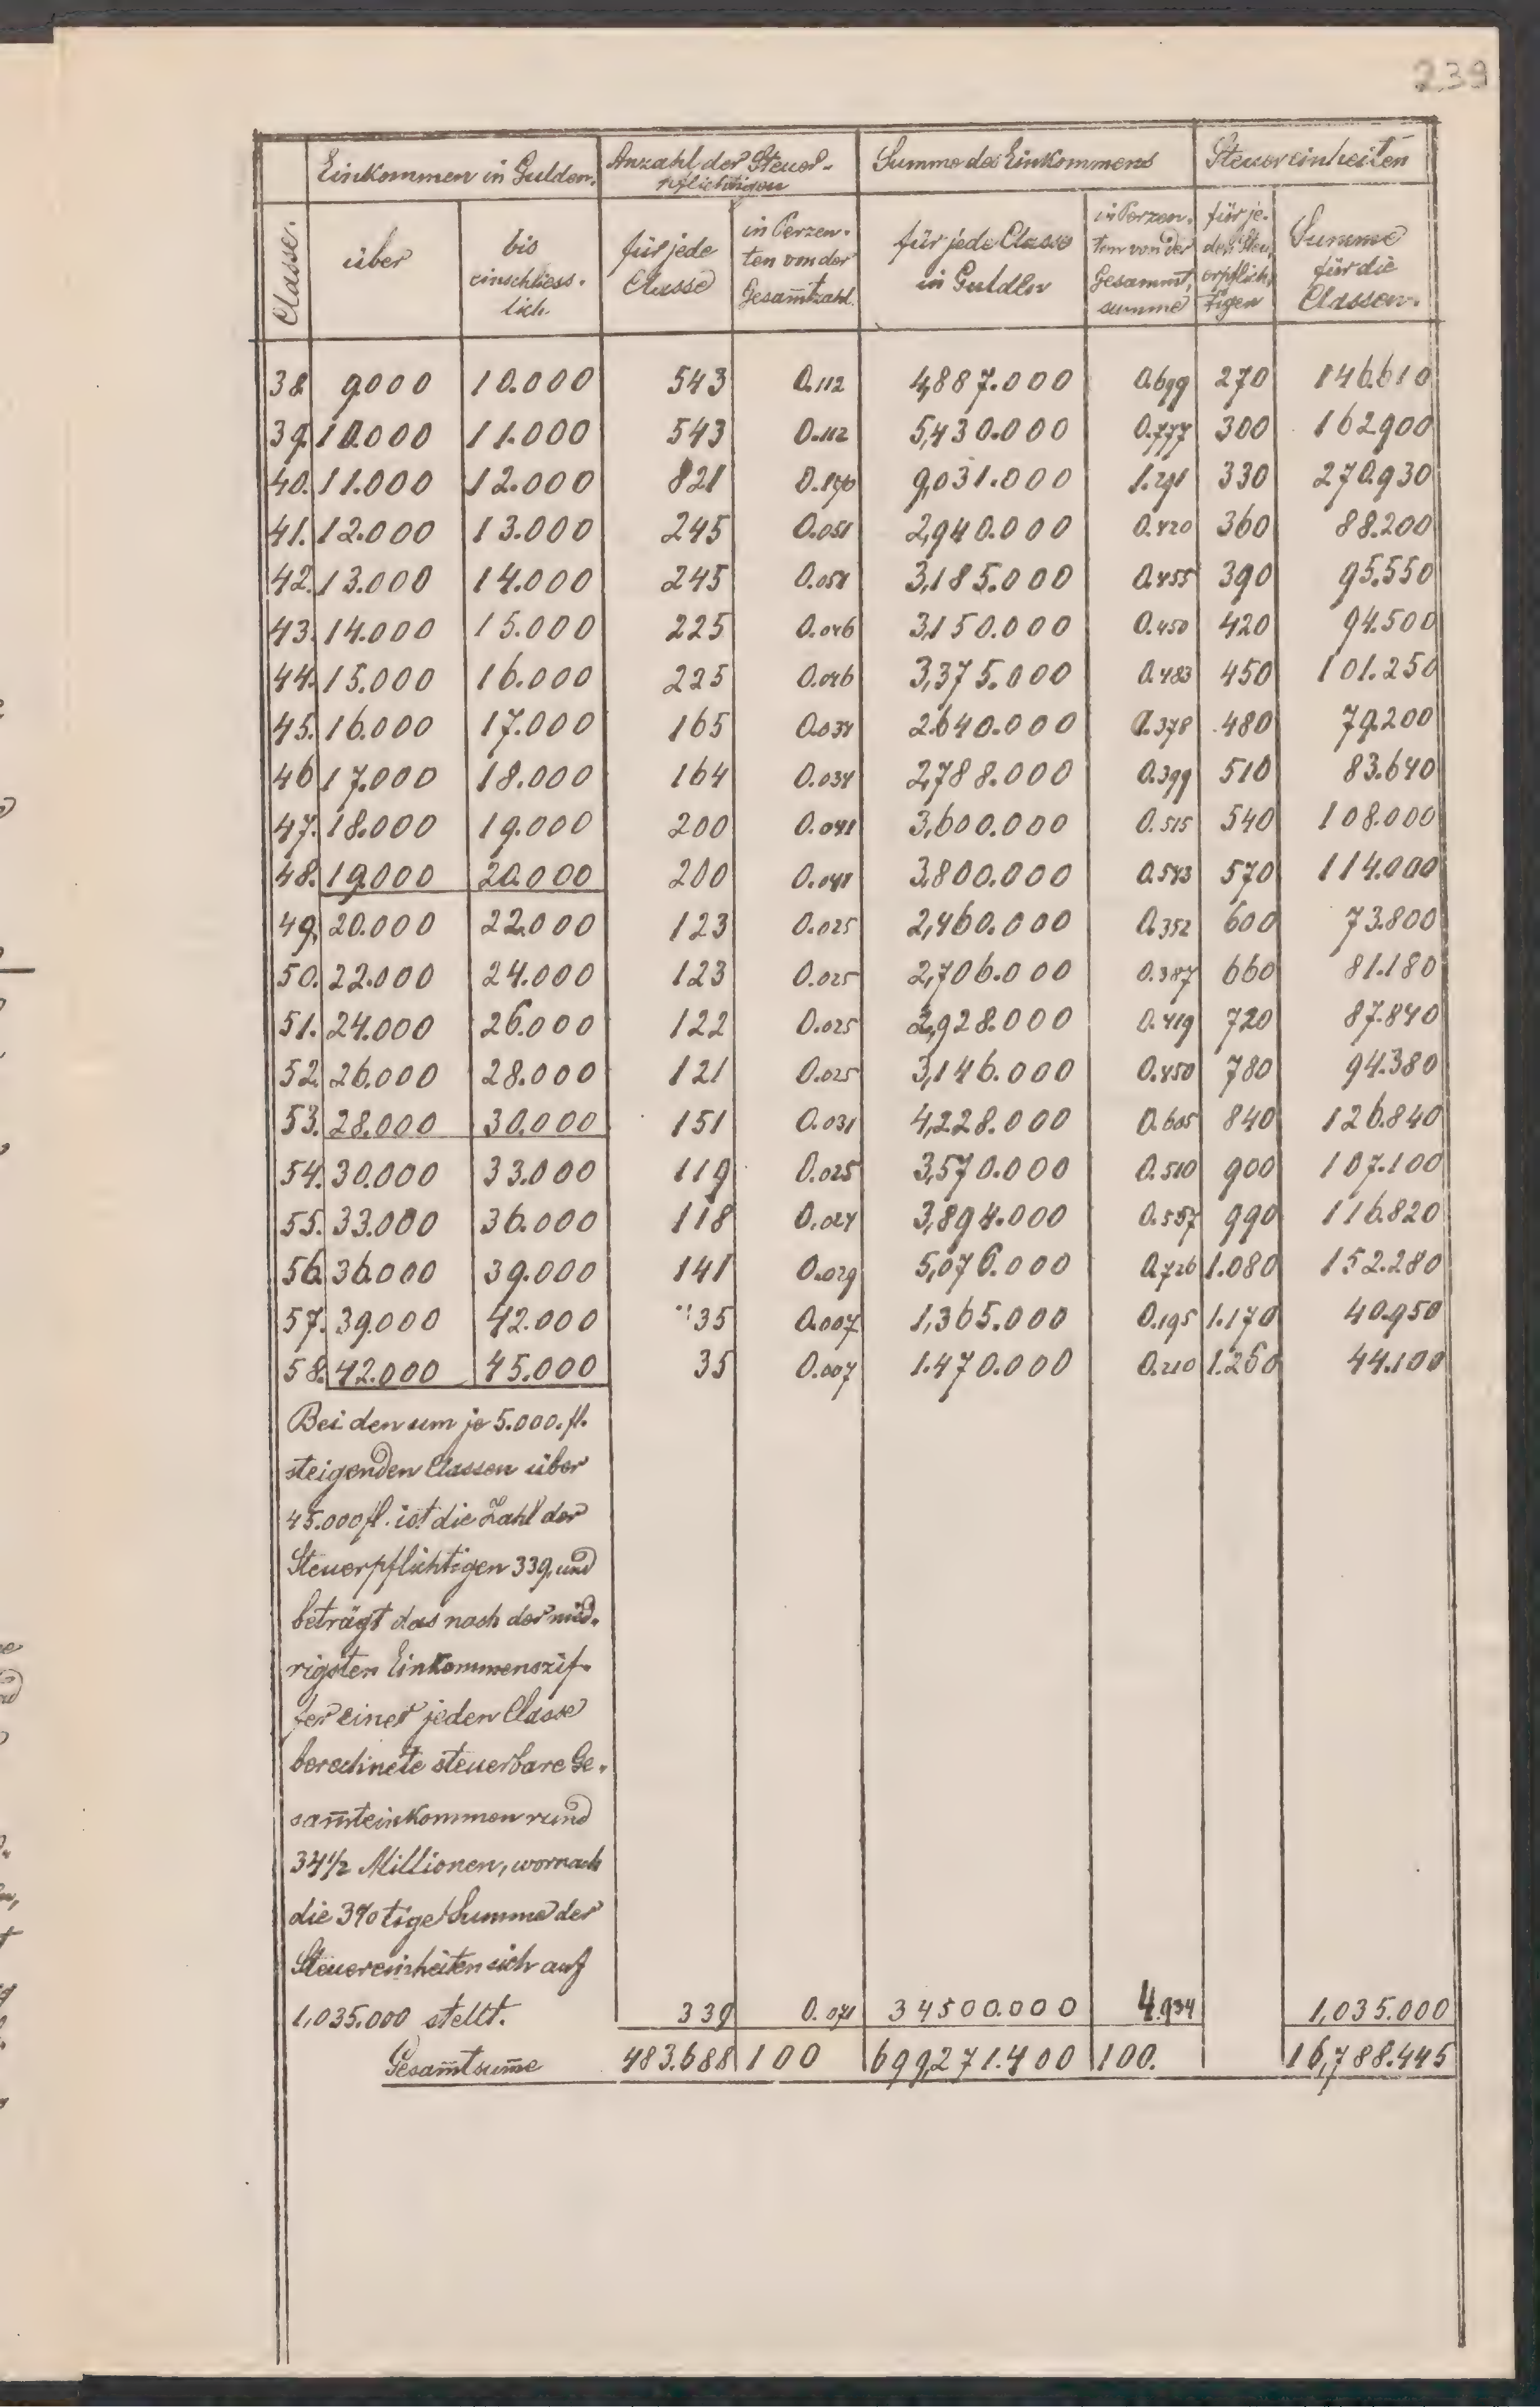 239
Einkommen in Gulden. Anzahl der Steuer- Summe des Einkommens Steuereinheiten
pflichtigen
Classe. über bis für jede in Perzen- für jede Classe in Perzen- für je- Summe
einschliess- Classe ten von der in Gulden ten von der den Steu- für die
lich. Gesam̅tzahl. Gesammt- erpflich- Classen.
summe tigen
38 9000 10.000 543 0.112 4,887.000 0.699 270 146.610
39. 10.000 11.000 543 0.112 5,430.000 0.777 300 162900
40. 11.000 12.000 821 0.170 9,031.000 1.291 330 270.930
41. 12.000 13.000 245 0.051 2,940.000 0.420 360 88.200
42. 13.000 14.000 245 0.051 3,185.000 0.455 390 95.550
43. 14.000 15.000 225 0.046 3,150.000 0.450 420 94.500
44. 15.000 16.000 225 0.046 3,375.000 0.483 450 101.250
45. 16.000 17.000 165 0.034 2.640.000 0.378 480 79.200
46 17.000 18.000 164 0.034 2,788.000 0.399 510 83.640
47. 18.000 19.000 200 0.041 3,600.000 0.515 540 108.000
48. 19.000 20.000 200 0.041 3.800.000 0.543 570 114.000
49. 20.000 22.000 123 0.025 2,460.000 0.352 600 73.800
50. 22.000 24.000 123 0.025 2,706.000 0.387 660 81.180
51. 24.000 26.000 122 0.025 2,928.000 0.419 720 87.840
52. 26.000 28.000 121 0.025 3,146.000 0.450 780 94.380
53. 28.000 30.000 151 0.031 4,228.000 0.605 840 126.840
54. 30.000 33.000 119 0.025 3,570.000 0.510 900 107.100
55. 33.000 36.000 118 0.024 3,894.000 0.557 990 116.820
56. 36.000 39.000 141 0.029 5,076.000 0.726 1.080 152.280
57. 39.000 42.000 35 0.007 1,365.000 0.195 1.170 40.950
58. 42.000 45.000 35 0.007 1.470.000 0.210 1.260 44.100
Bei den um je 5.000. fl.
steigenden Classen über
45.000 fl. ist die Zahl der
Steuerpflichtigen 339, und
beträgt das nach der nied-
rigsten Einkommenszif-
fer einer jeden Classe
berechnete steuerbare Ge-
sam̅teinkommen rund
34½ Millionen, wornach
die 3%tige Summe der
Steuereinheiten sich auf
1,035.000 stellt. 339 0.071 34500.000 4.934 1,035.000
Gesam̅tsum̅e 483.688 100 699,271.400 100. 16,788.445